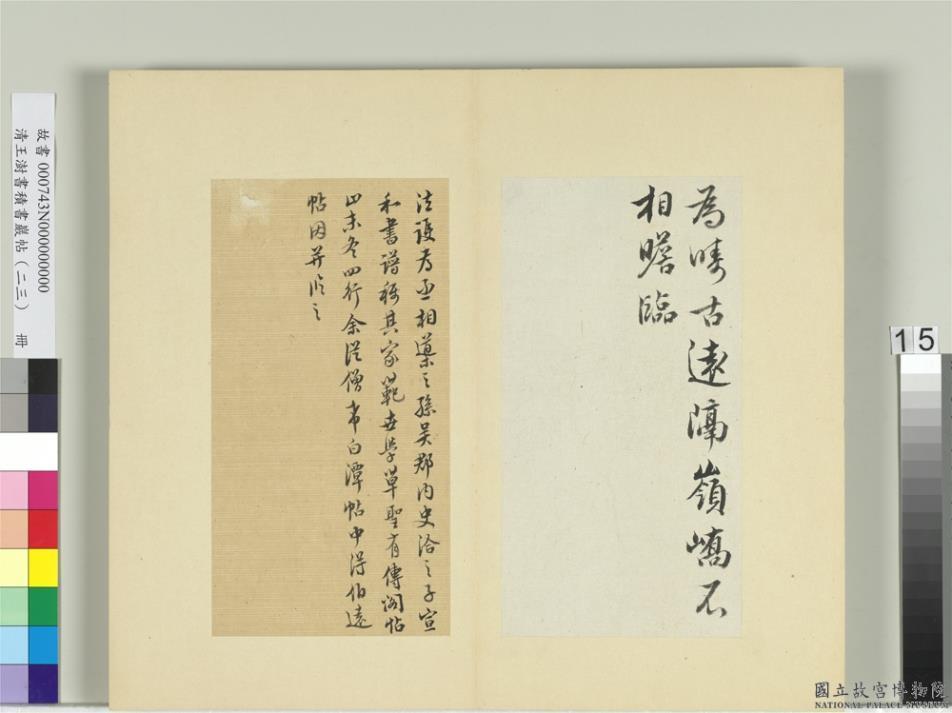 為疇古遠隔嶺嶠不
相瞻臨
法護為丞相導之孫吳郡內史洽之子宣
和書譜稱其家範世學草聖有傳閣帖
止末冬四行余從僧希白潭帖中得伯遠
帖因并臨之
故書 000743N000000000
清王澍書積書巖帖（二三） 冊
15
國立故宮博物院
NATIONAL PALACE MUSEUM